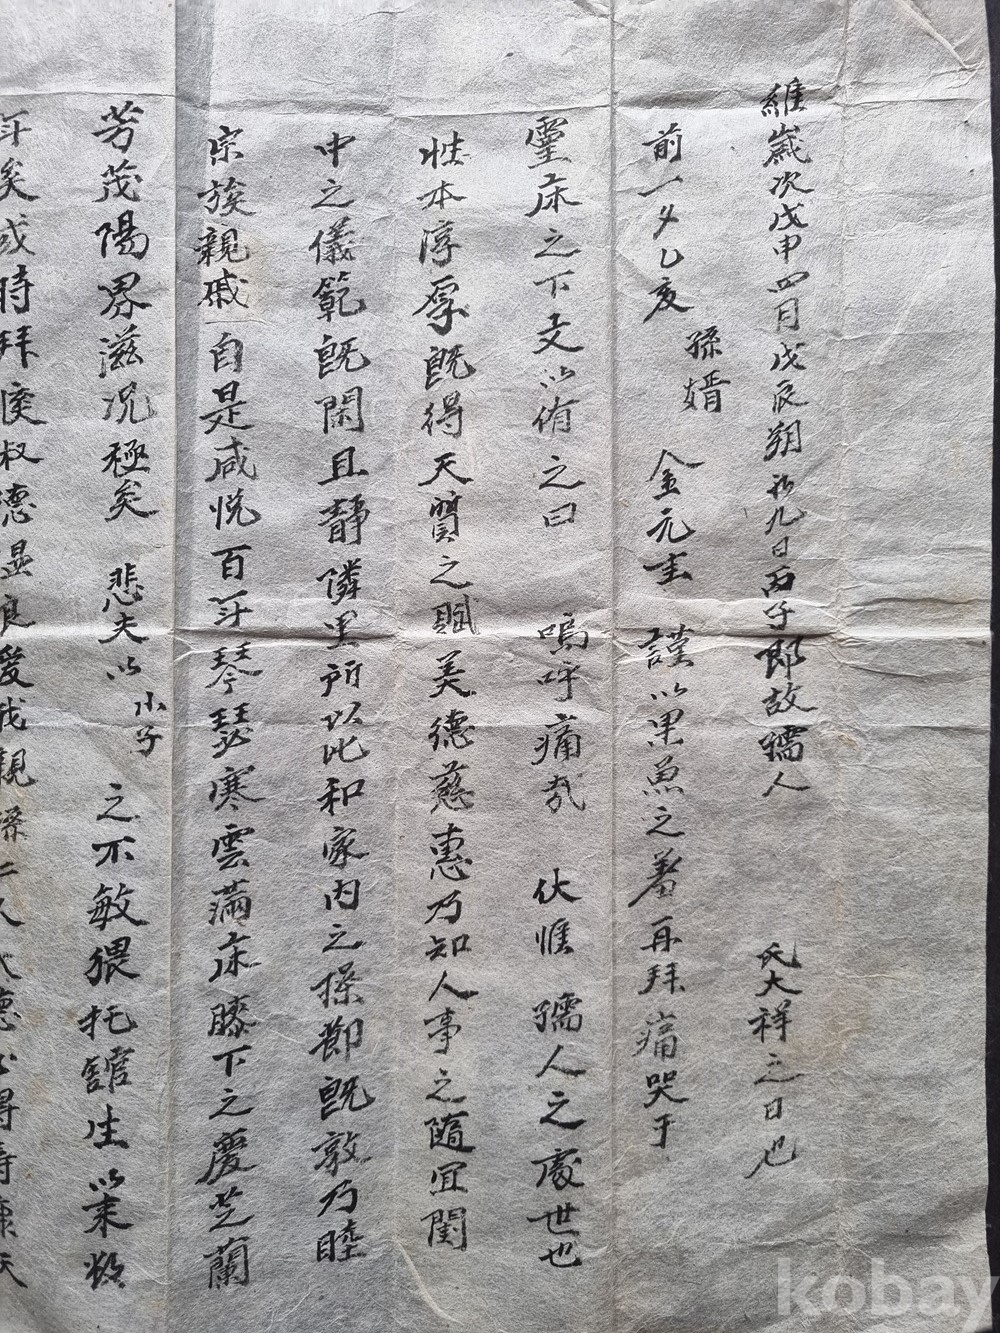 維歲次戊申四月戊辰朔初九日丙子卽故孺人 氏大祥之日也
前一夕乙亥 孫婿 金元圭 謹以果魚之羞再拜痛哭于
靈床之下文以侑之曰 嗚呼痛哉 伏惟 孺人之處世也
性本淳厚旣得天質之賦美德慈惠乃知人事之隨宜閨
中之儀範旣閑且靜隣里所以比和家內之操節旣敦乃睦
宗族親戚自是咸悅百年琴瑟寒雲滿床膝下之慶芝蘭
芳茂陽界滋况極矣 悲夫以 小子 之不敏猥托舘生以來數
年矣或時拜候叔德显良愛我親 人 德 得 天
kobay